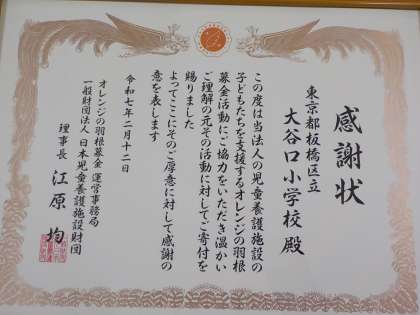 感謝状
東京都板橋区立
大谷口小学校 殿
この度は当法人の児童養護施設の
子どもたちを支援するオレンジの羽根
募金活動にご協力をいただき温かい
ご理解の元その活動に対してご寄付を
賜りました
よってここにそのご厚意に対して感謝の
意を表します
令和七年二月十二日
オレンジの羽根募金 運営事務局
一般財団法人 日本児童養護施設財団
理事長 江原 均